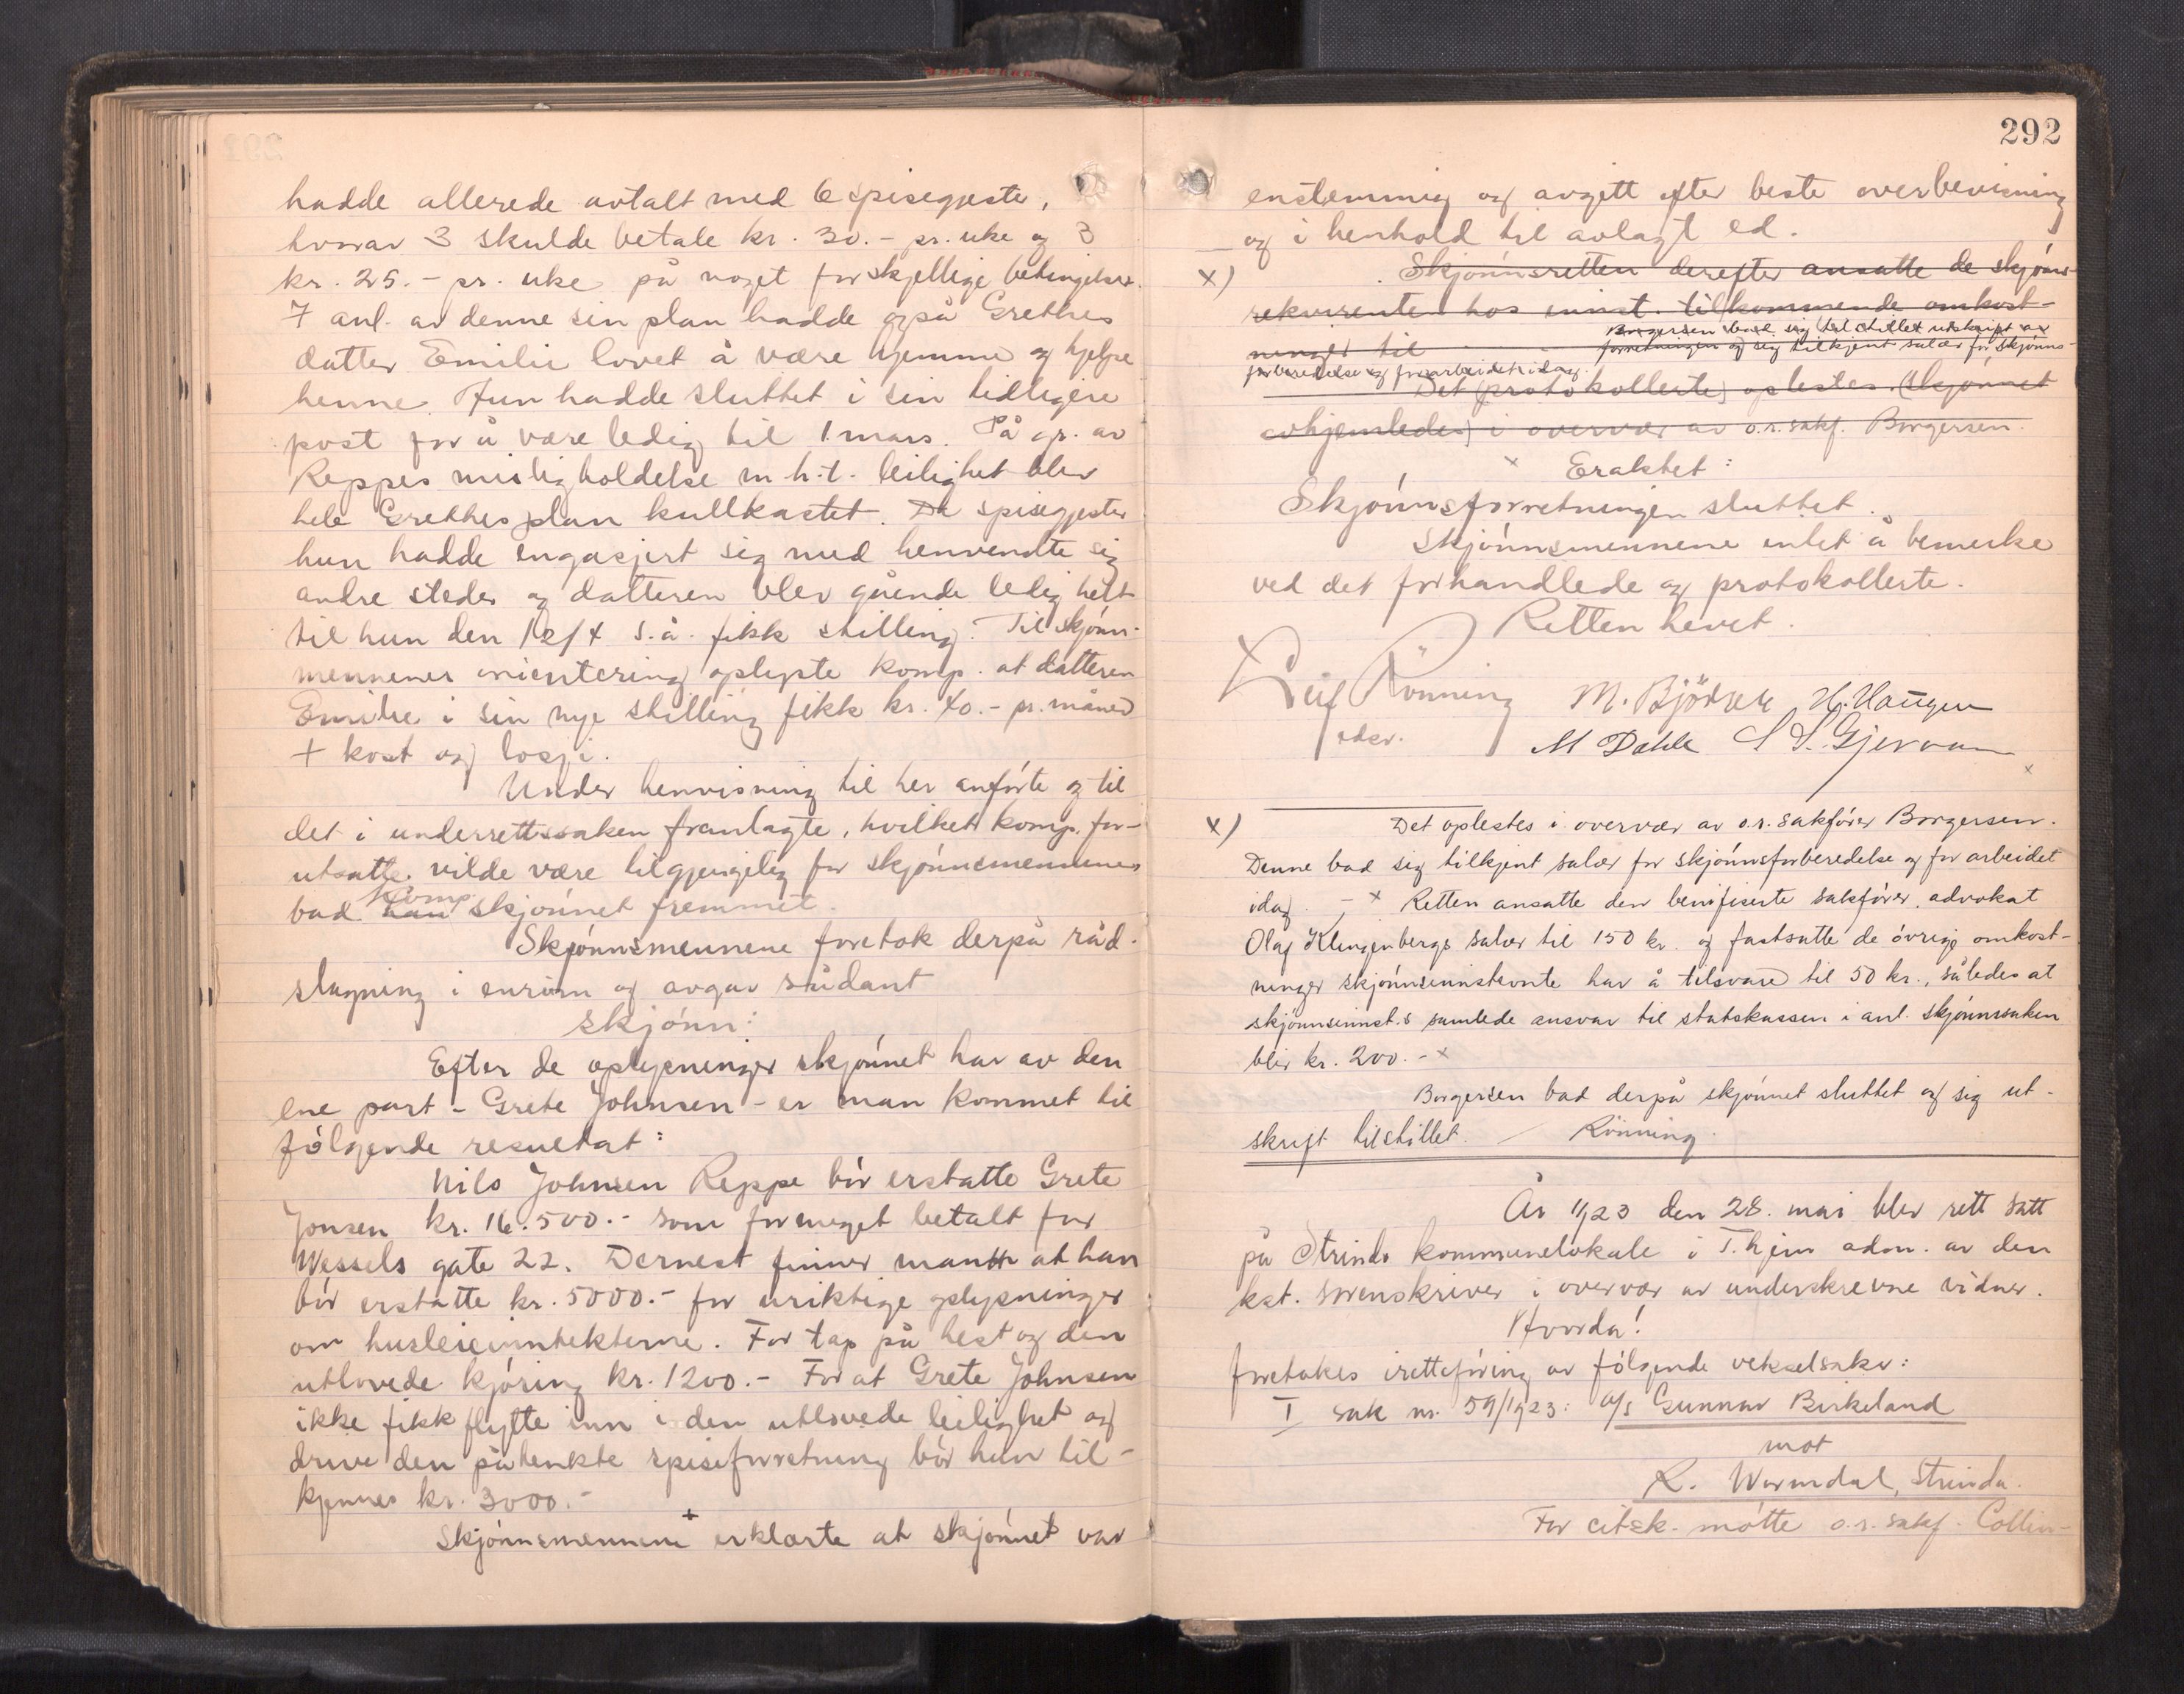 hadde allerede avtalt med 6 spisegjester,
hvorav 3 skulde betale kr. 30.- pr. uke og 3
kr. 25.- pr. uke på noget forskjellige betingelser.
I anl. av denne sin plan hadde også Grethes
datter Emilie lovet å være hjemme og hjelpe
henne. Hun hadde sluttet i sin tidligere
post for å være ledig til 1 mars. På gr. av
Reppes misligholdelse m.h.t. leilighet blev
hele Grethes plan kullkastet. De spisegjester
hun hadde engasjert sig med henvendte sig
andre steder og datteren blev gående ledig helt
til hun den 12/4 s.å. fikk stilling. Til skjønns-
mennenes orientering oplyste komp. at datteren
Emilie i sin nye stilling fikk kr. 40.- pr. måned
+ kost og losji.
Under henvisning til her anførte og til
det i underrettssaken fremlagte, hvilket komp. for-
utsatte vilde være tilgjengelig for skjønnsmennene
bad han Komp. skjønnet fremmet.
Skjønnsmennene foretok derpå råd-
slagning i enrum og avgav sådant
skjønn:
Efter de oplysninger skjønnet har av den
ene part - Grete Johnsen - er man kommet til
følgende resultat:
Nils Johnsen Reppe bør erstatte Grete
Jonsen kr. 16.500.- som formeget betalt for
Wessels gate 22. Dernest finner man at han
bør erstatte kr. 5000.- for uriktige oplysninger
om husleieinntekterne. For tap på hest og den
utlovede kjøring kr. 1200.- For at Grete Johnsen
ikke fikk flytte inn i den utlovede leilighet og
drive den påtenkte spiseforretning bør hun til-
kjennes kr. 3000.-
Skjønnsmennene erklærte at skjønnet var
292
enstemmig og avgitt efter beste overbevisning
og i henhold til avlagt ed.
x) Skjønnsretten derefter ansatte de skjønns-
rekvirenten hos innst. tilkommende omkost-
ninger til
Borgersen bad sig tilstillet utskrift av
forretningen og sig tilkjent salær for skjønns-
forberedelse og for arbeidet idag.
Det (protokollerte) oplestes (skjønnet
avhjemledes) i overvær av o.r.sakf. Borgersen.
x Eraktet:
Skjønnsforretningen sluttet.
Skjønnsmennene intet å bemerke
ved det forhandlede og protokollerte.
Retten hevet.
Leif Rønning M. Bjørk H. Haugen
M Dahle S. Gjervan
x) Det oplestes i overvær av o.r. sakfører Borgersen.
Denne bad sig tilkjent salær for skjønnsforberedelse og for arbeidet
idag. - x Retten ansatte den benifiserte sakfører, advokat
Olaf Klingenbergs salær til 150 kr. og fastsatte de øvrige omkost-
ninger skjønnsinnstevnte har å tilsvare til 50 kr., således at
skjønnsinnst.s samlede ansvar til statskassen i anl. skjønnssaken
blir kr. 200.- x
Borgersen bad derpå skjønnet sluttet og sig ut-
skrift tilstillet. Rønning.
År 1923 den 28. mai blev rett satt
på Strinda kommunelokale i T.hjem adm. av den
kst. sorenskriver i overvær av underskrevne vidner.
Hvorda!
foretokes iretteføring av følgende vekselsaker:
I sak nr. 59/1923: A/s Gunnar Birkeland
mot
R. Wormdal, Strinda.
For citsk. møtte o.r. sakf. Collin-